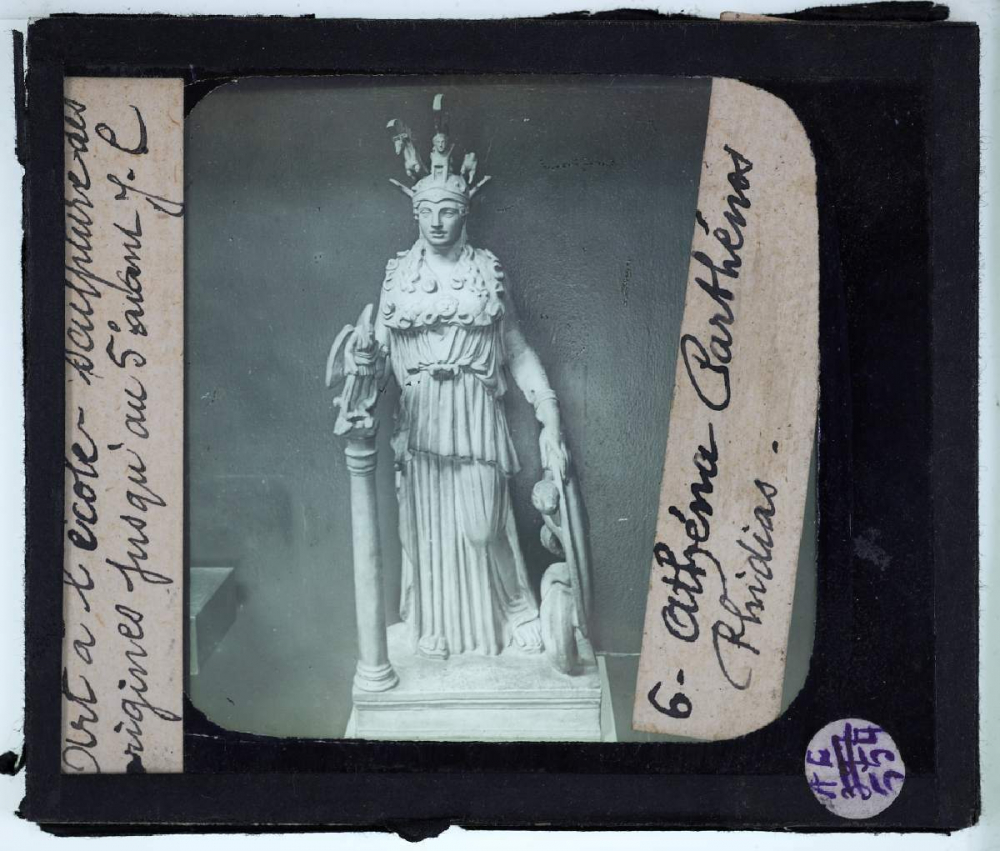 Art à l'école - sculpture des
origines jusqu'au 5e avant J. C
6- Athéna Parthénos
Phidias.
AE
554